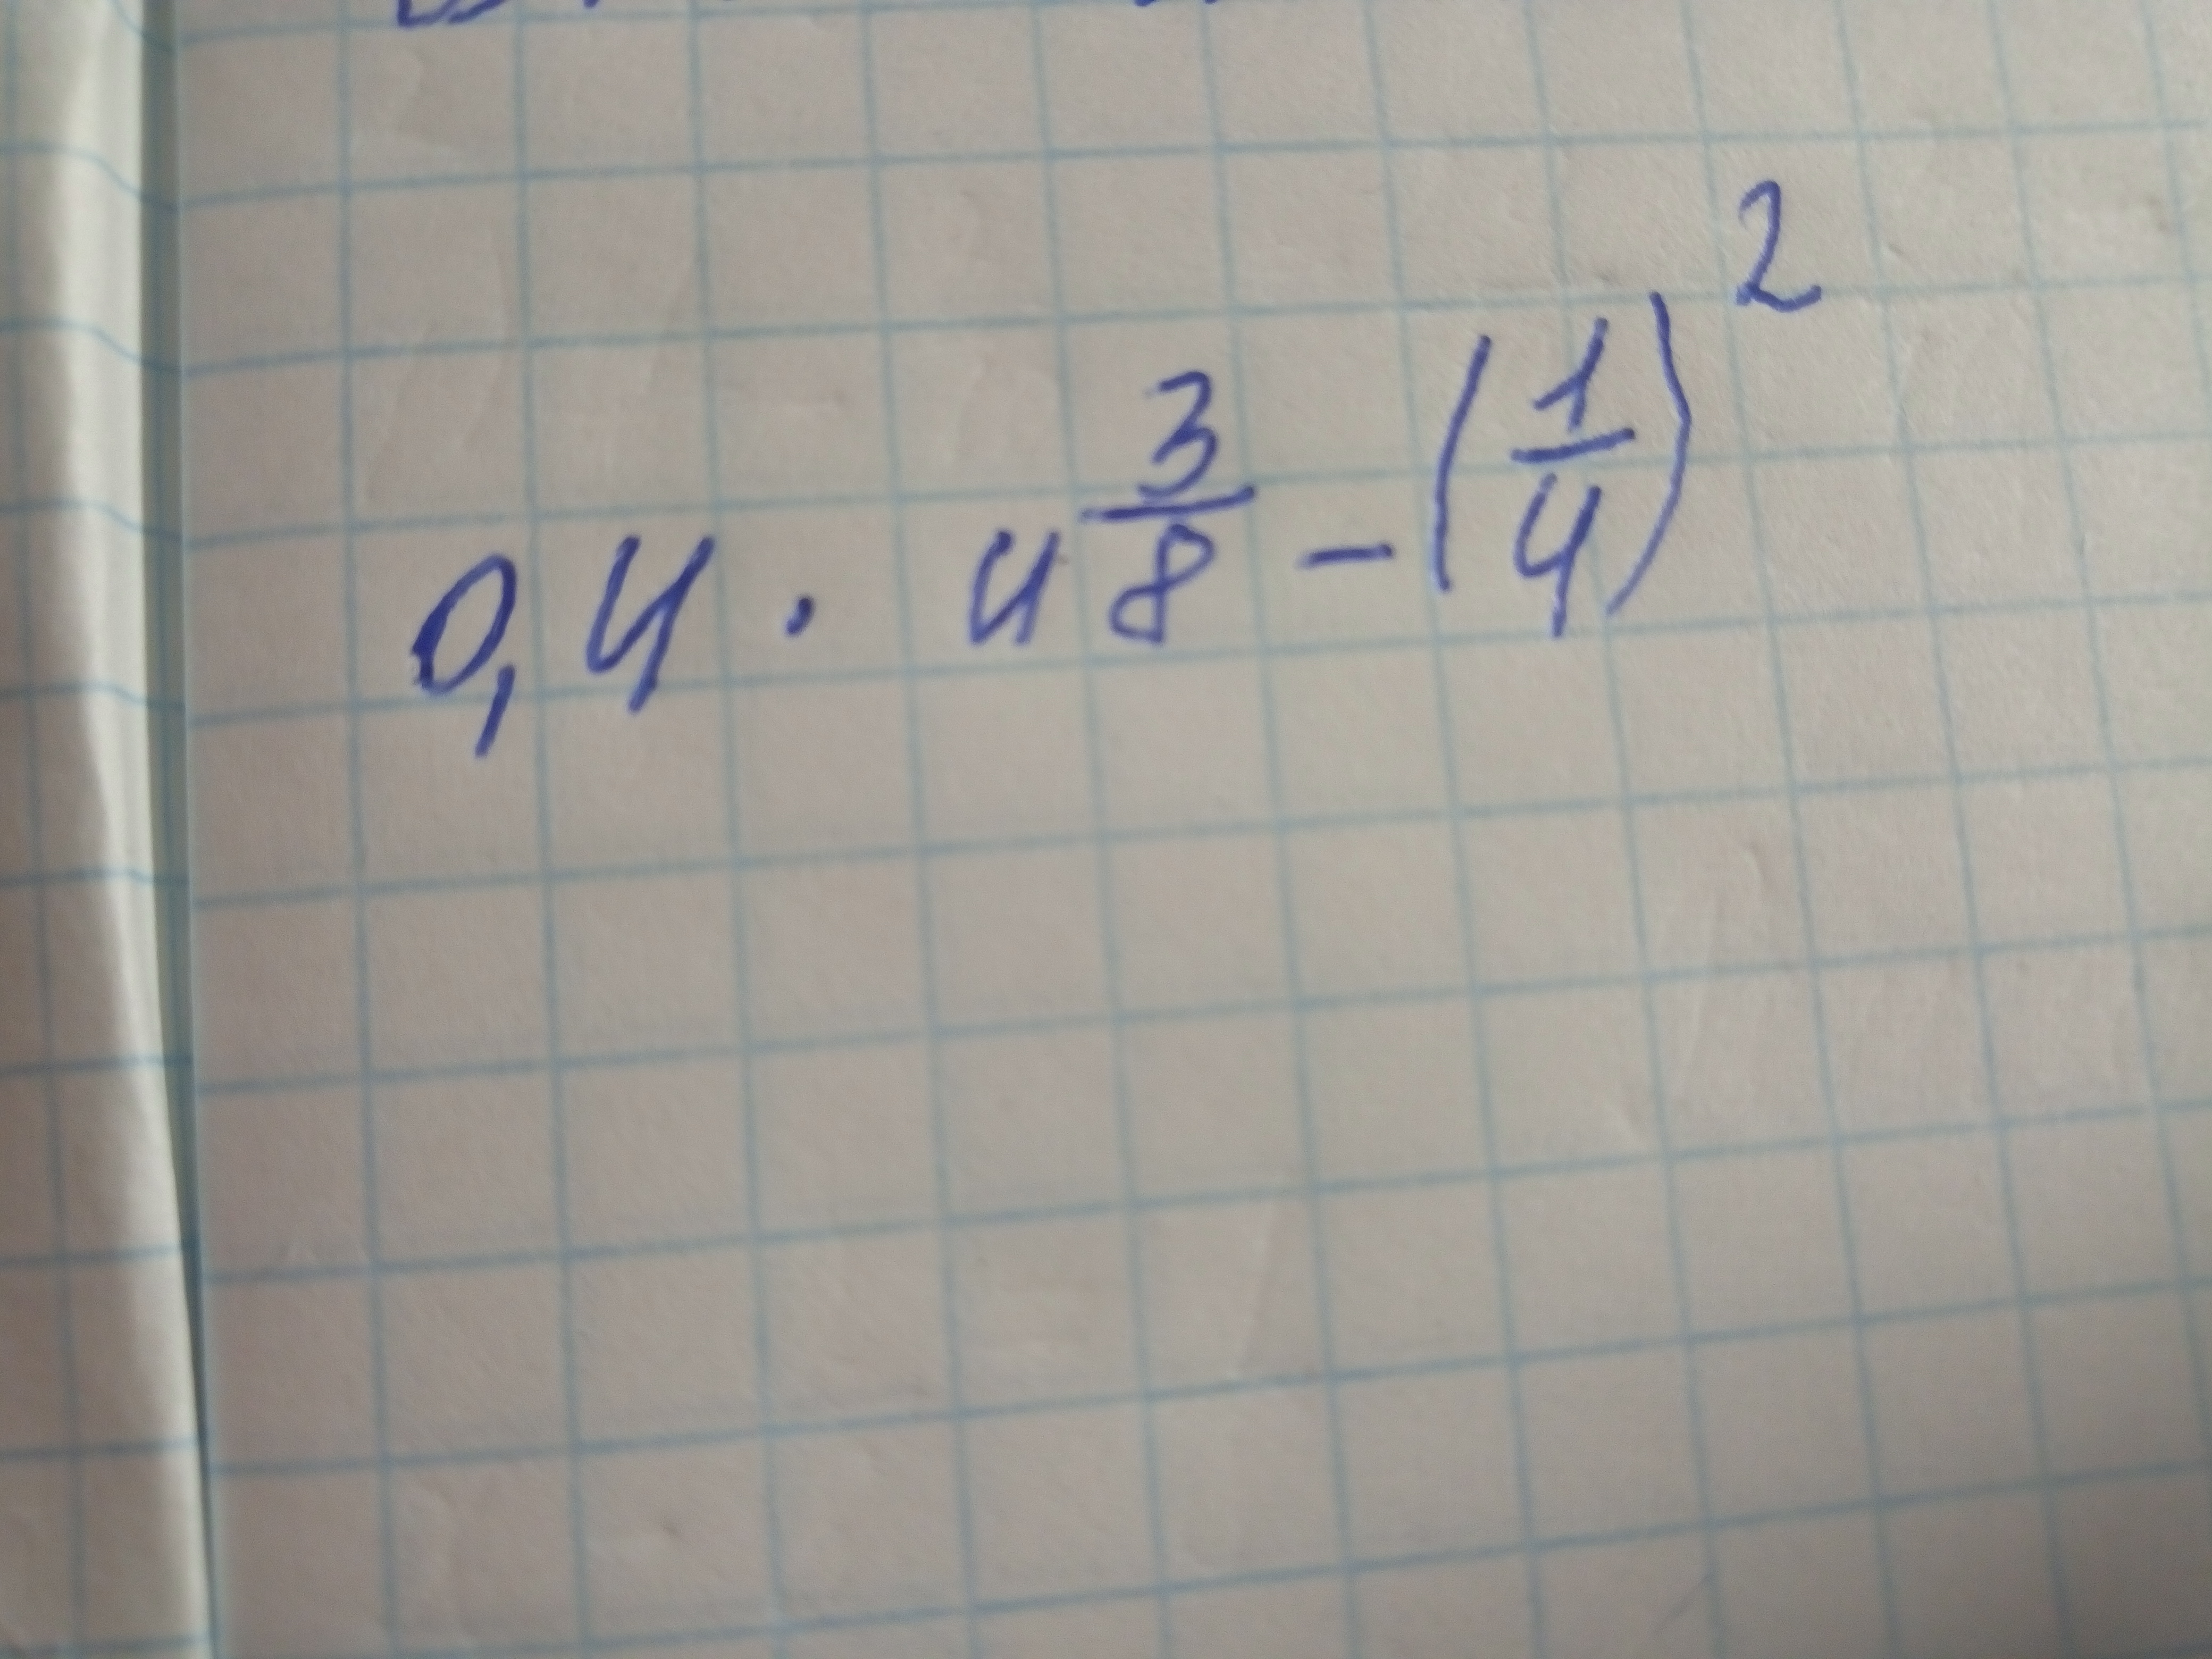 0,4 · 4 3/8 - (1/4)²